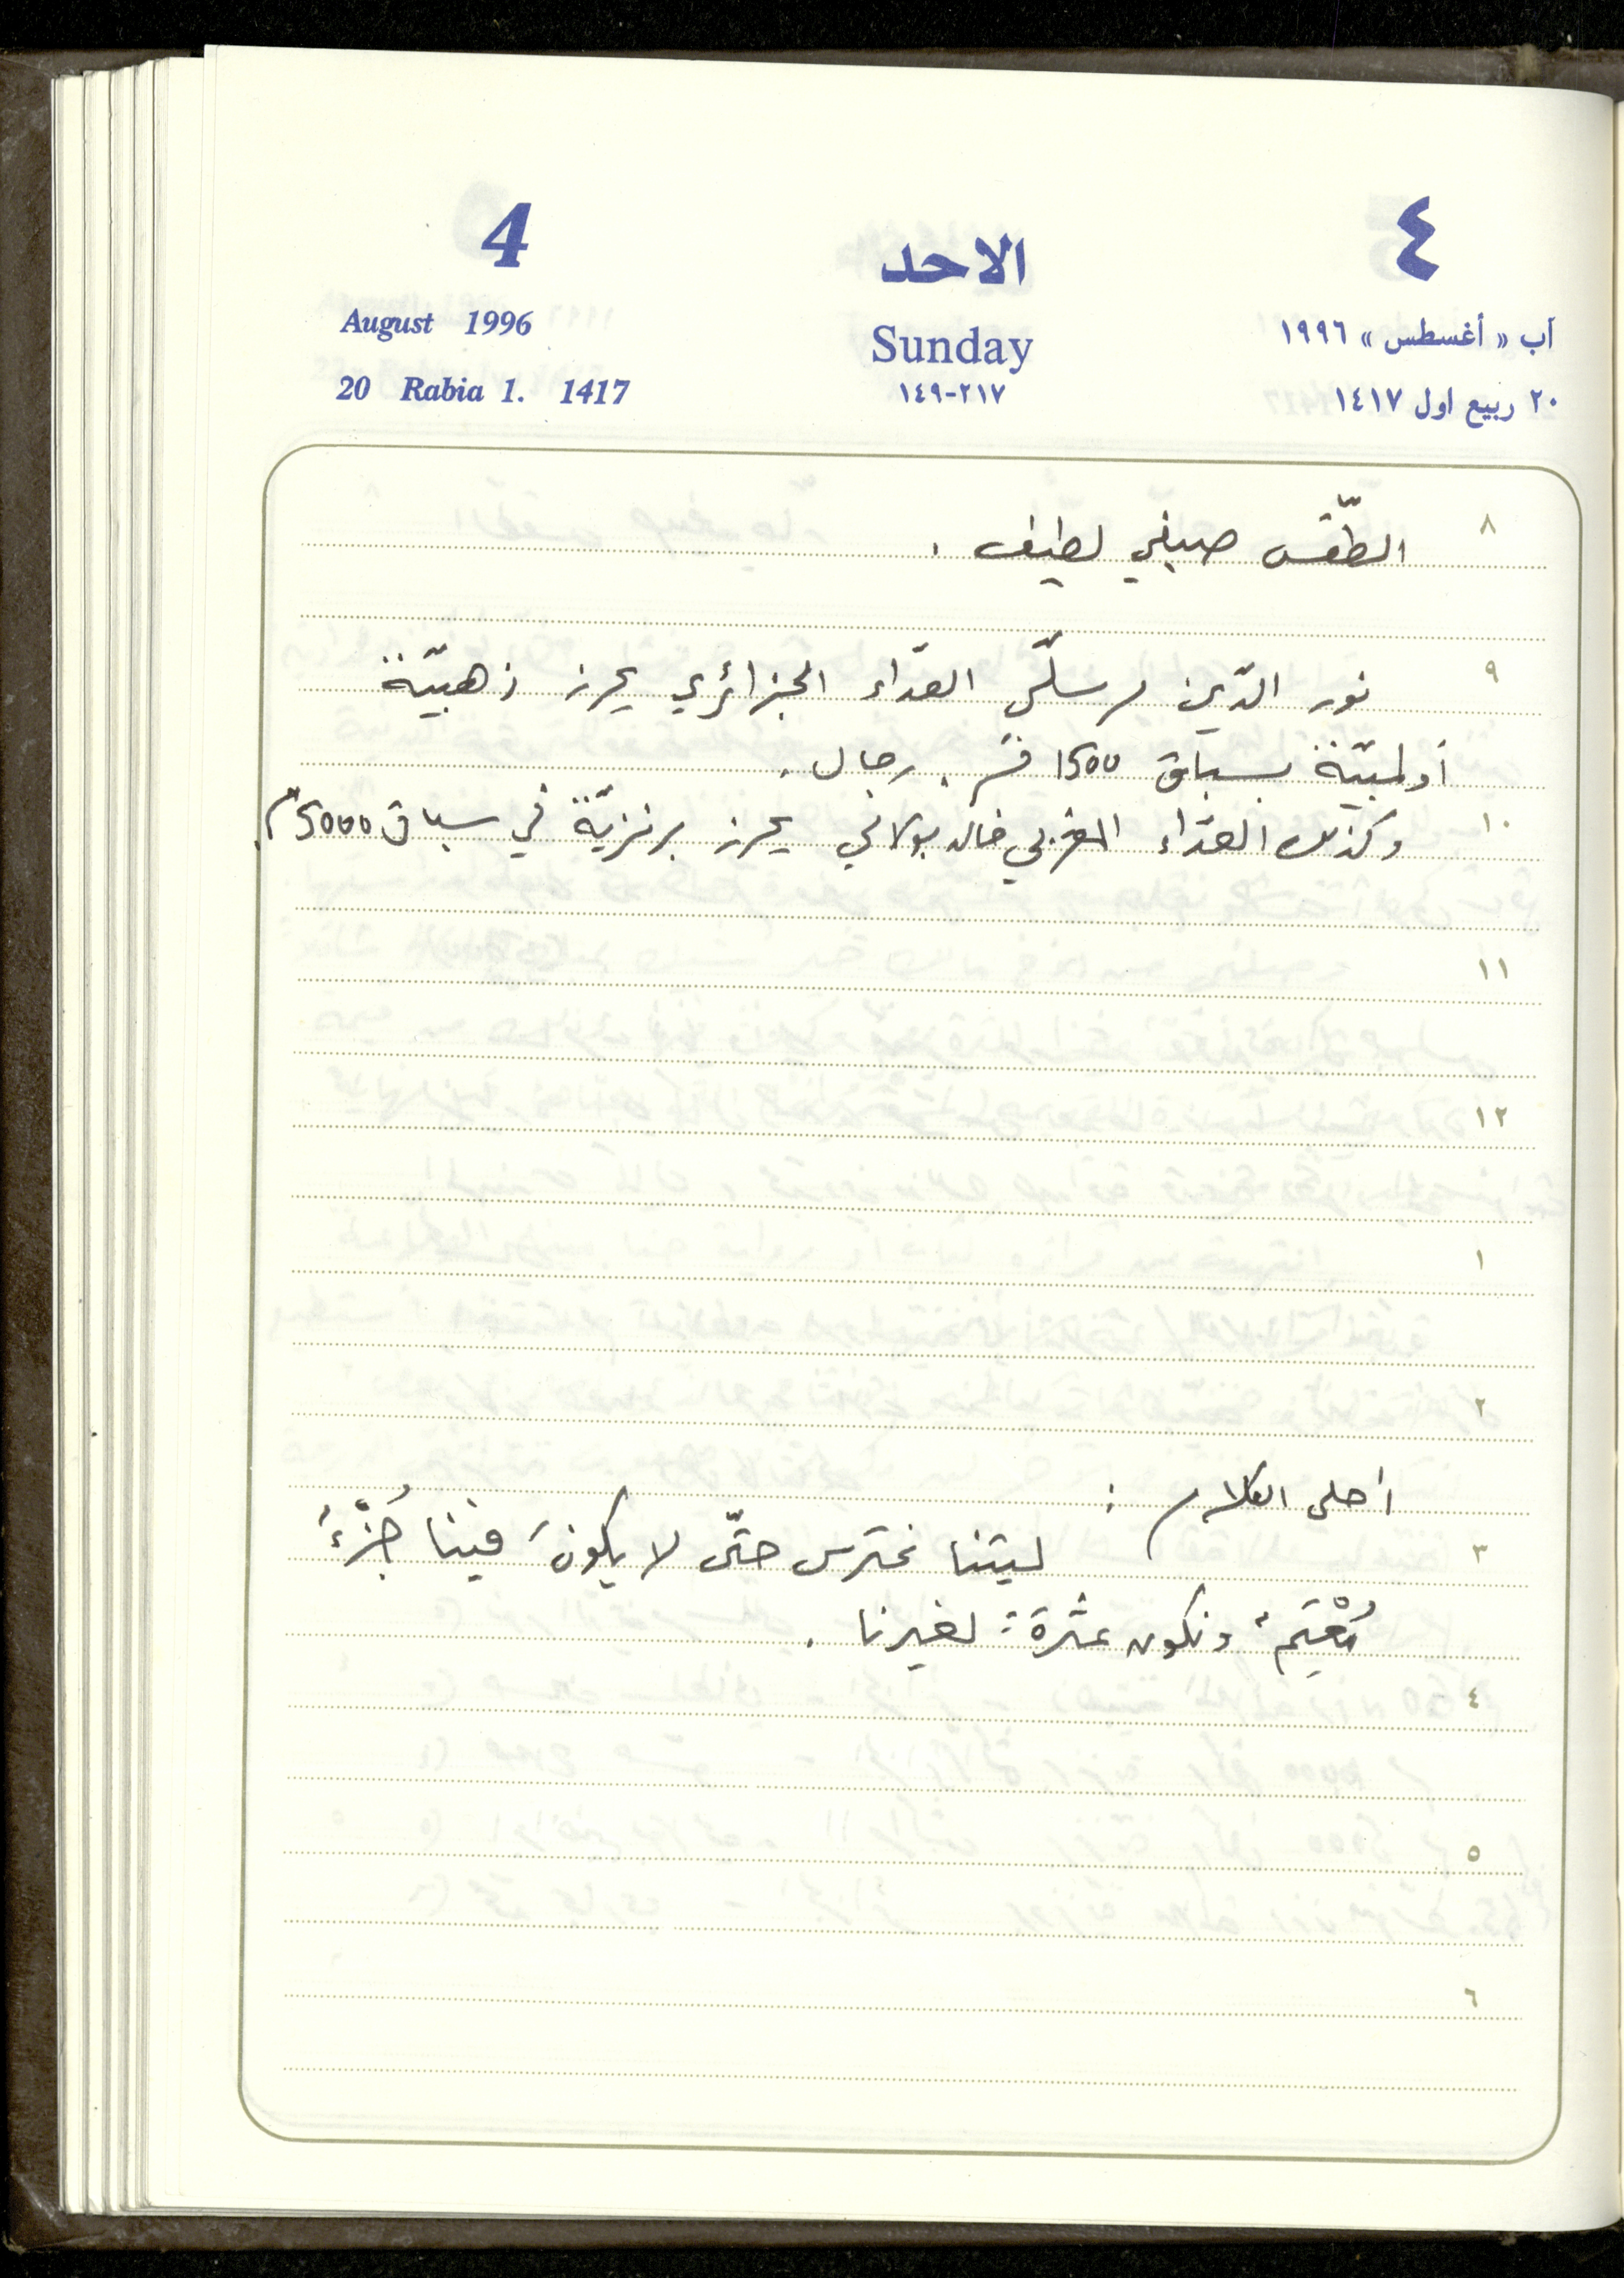 4 الاحد ٤
August 1996 Sunday آب « أغسطس » ١٩٩٦
20 Rabia 1. 1417 ٢١٧-١٤٩ ٢٠ ربيع اول ١٤١٧
٨ الطّقس صيفي لطيف .
٩ نور الدّين مرسلّي العدّاء الجزائري يحرز ذهبيّة
أولمبيّة بسباق 1500 م. رجال .
١٠ وكذلك العدّاء المغربي خالد بولامي يحرز برنزيّة في سباق 5000 م.
١١
١٢
١
٢
أحلى الكلام :
٣ ليتنا نحترس حتّى لا يكونَ فينا جُزْءٌ
مُعْتِمٌ ونكون عثرَةً لغيرنا .
٤
٥
٦